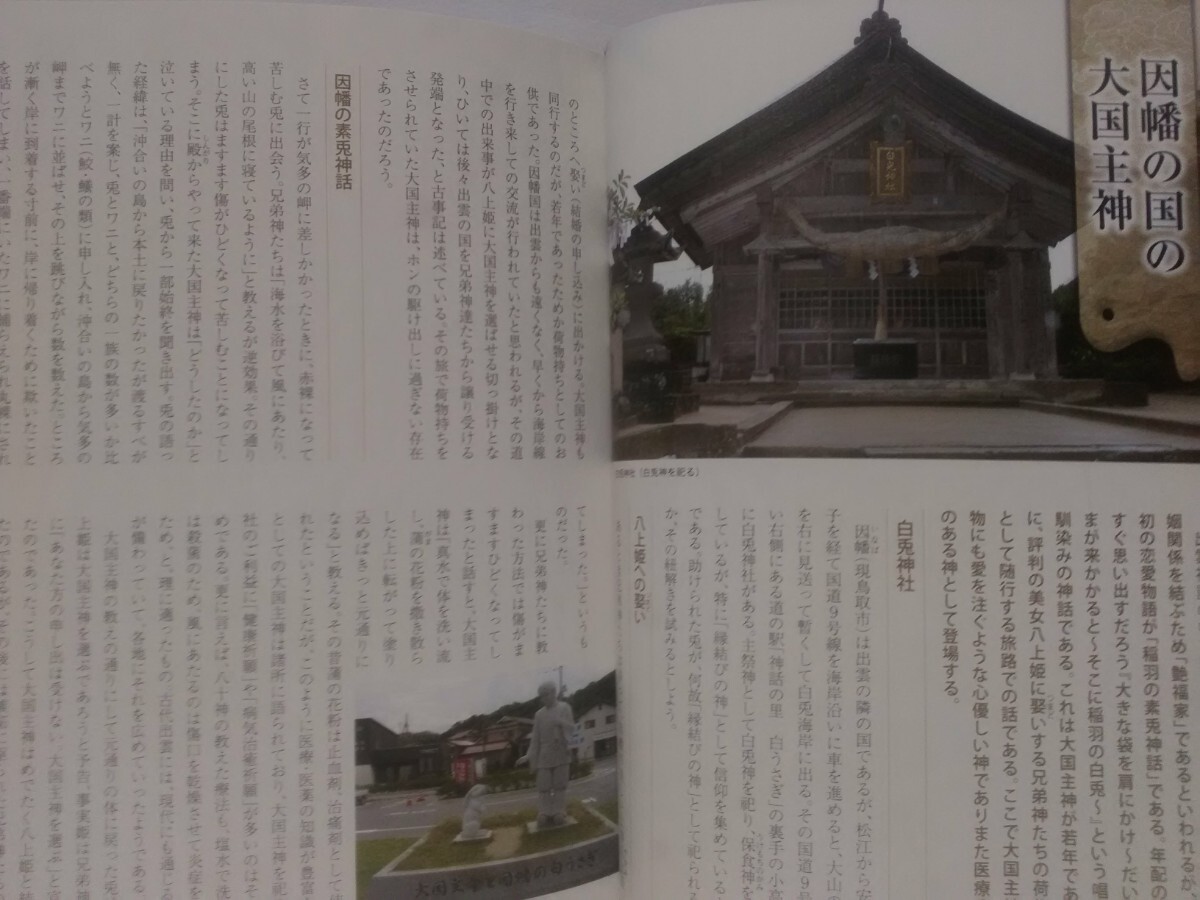 因幡の国の
大国主神
白兎神社
白兎神社（白兎神を祀る）
姻関係を結ぶため『艶福家』であるといわれるが、
初の恋愛物語が「稲羽の素兎神話」である。年配の
すぐ思い出すだろう『大きな袋を肩にかけ～だい
まが来かかると～そこに稲羽の白兎～』という唱
馴染みの神話である。これは大国主神が若年であ
に、評判の美女八上姫に娶いする兄弟神たちの荷
として随行する旅路での話である。ここで大国主
物にも愛を注ぐような心優しい神でありまた医療
のある神として登場する。
白兎神社
因幡（現鳥取市）は出雲の隣の国であるが、松江から安
子を経て国道9号線を海岸沿いに車を進めると、大山の
を右に見送って暫くして白兎海岸に出る。その国道9号
い右側にある道の駅「神話の里　白うさぎ」の裏手の小高
に白兎神社がある。主祭神として白兎神を祀り、保食神を
しているが、特に「縁結びの神」として信仰を集めている
である。助けられた兎が、何故「縁結びの神」として祀られる
か。その紐解きを試みるとしよう。
八上姫への娶い
のところへ娶い（結婚の申し込み）に出かける。大国主神も
同行するのだが、若年であったためか荷物持ちとしてのお
供であった。因幡国は出雲からも遠くなく、早くから海岸線
を行き来しての交流が行われていたと思われるが、その道
中での出来事が八上姫に大国主神を選ばせる切っ掛けとな
り、ひいては後々出雲の国を兄弟神達たちから譲り受ける
発端となった、と古事記は述べている。その旅で荷物持ちを
させられていた大国主神は、ホンの駆け出しに過ぎない存在
であったのだろう。
因幡の素兎神話
さて一行が気多の岬に差しかかったときに、赤裸になって
苦しむ兎に出会う。兄弟神たちは「海水を浴びて風にあたり、
高い山の尾根に寝ているように」と教えるが逆効果。その通り
にした兎はますます傷がひどくなって苦しむことになってし
まう。そこに殿からやって来た大国主神は「どうしたのか」と
泣いている理由を問い、兎から一部始終を聞き出す。兎の語っ
た経緯は、「沖合いの島から本土に戻りたかったが渡るすべが
無く、一計を案じ、兎とワニと、どちらの一族の数が多いか比
べようとワニ（鮫・鱶の類）に申し入れ、沖合いの島から気多の
岬までワニに並ばせ、その上を跳びながら数を数えた。ところ
が漸く岸に到着する寸前に、岸に帰り着くために欺いたこと
を話してしまい、一番端にいたワニに捕らえられ丸裸にされ
てしまった。」というも
のだった。
更に兄弟神たちに教
わった方法では傷がま
すますひどくなってし
まったと話すと、大国主
神は「真水で体を洗い流
し、蒲の花粉を撒き散ら
した上に転がって塗り
込めばきっと元通りに
なる」と教える。その昔蒲の花粉は止血剤、治痛剤として
れたということだが、このように医療・医薬の知識が豊富
とっての大国主神は諸所に語られており、大国主神を祀
社のご利益に「健康祈願」や「病気治癒祈願」が多いのはそ
めである。更に言えば、八十神の教えた療法も、塩水で洗
は殺菌のため、風にあたるのは傷口を乾燥させて炎症を
ため、と理に適ったもの。古代出雲には、現代にも通じる
が備わっていて、各地にそれを広めていったようである
大国主神の教えの通りにして元通りの体に戻った兎
上姫は大国主神を選ぶであろうと予告。事実姫は兄弟神
に「あなた方の申し出は受けない。大国主神を選ぶ」と言
たのであった。こうして大国主神はめでたく八上姫と結
大国主命と因幡の白うさぎ